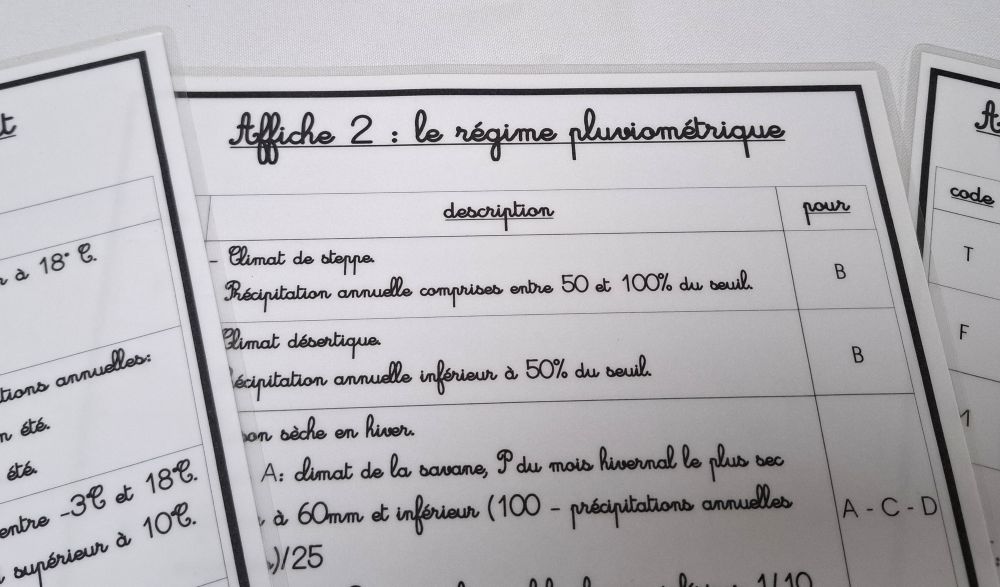 à 18° C.
annuelles:
été.
été.
entre -3°C et 18°C.
supérieur à 10°C.
Affiche 2 : le régime pluviométrique
description
pour
- Climat de steppe.
Précipitation annuelle comprises entre 50 et 100% du seuil.
B
Climat désertique.
écipitation annuelle inférieur à 50% du seuil.
B
son sèche en hiver.
A: climat de la savane, P du mois hivernal le plus sec
à 60mm et inférieur (100 - précipitations annuelles
)/25
A - C - D
1/10
A
code
T
F